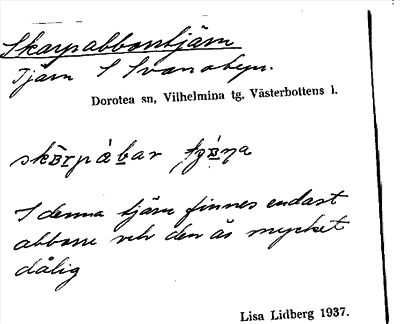 Skarpabborrtjärn
Tjärn S Svanabyn.
Dorotea sn, Vilhelmina tg, Västerbottens l.
I denna tjärn finnes endast
abborre och den är mycket
dålig
Lisa Lidberg 1937.